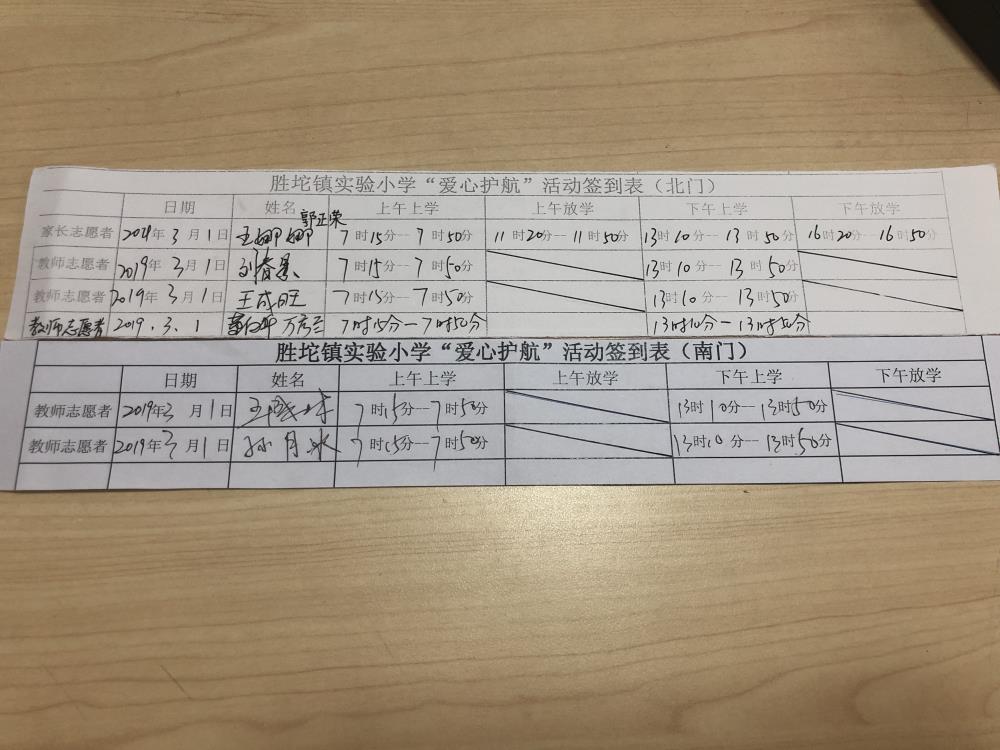 胜坨镇实验小学“爱心护航”活动签到表（北门）
日期 姓名 上午上学 上午放学 下午上学 下午放学
郭正荣
家长志愿者 2019年3月1日 王娜娜 7时15分--7时50分 11时20分--11时50分 13时10分--13时50分 16时20分--16时50分
教师志愿者 2019年3月1日 7时15分--7时50分 13时10分--13时50分
教师志愿者 2019年3月1日 王成旺 7时15分--7时50分 13时10分--13时50分
教师志愿者 2019.3.1 7时15分-7时50分 13时10分-13时50分
胜坨镇实验小学“爱心护航”活动签到表（南门）
日期 姓名 上午上学 上午放学 下午上学 下午放学
教师志愿者 2019年3月1日 7时15分--7时50分 13时10分--13时50分
教师志愿者 2019年3月1日 孙月冰 7时15分--7时50分 13时10分--13时50分